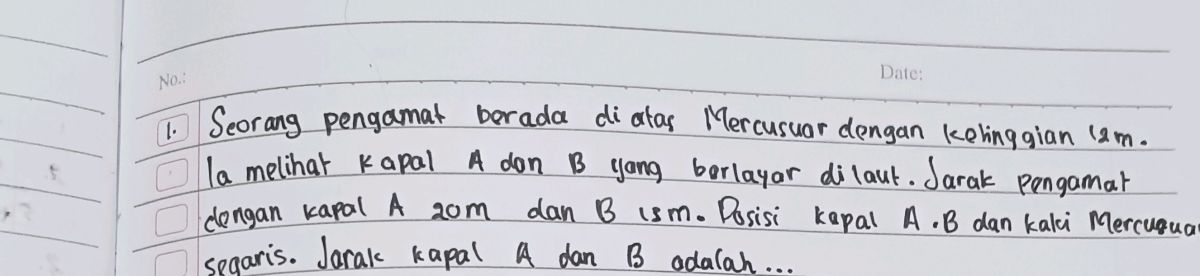 No.:
Date:
1. Seorang pengamat berada di atas Mercusuar dengan ketinggian 12m.
Ia melihat kapal A dan B yang berlayar dilaut. Jarak pengamat
dengan kapal A 20m dan B 15m. Posisi kapal A.B dan kaki Mercusua
segaris. Jarak kapal A dan B adalah...